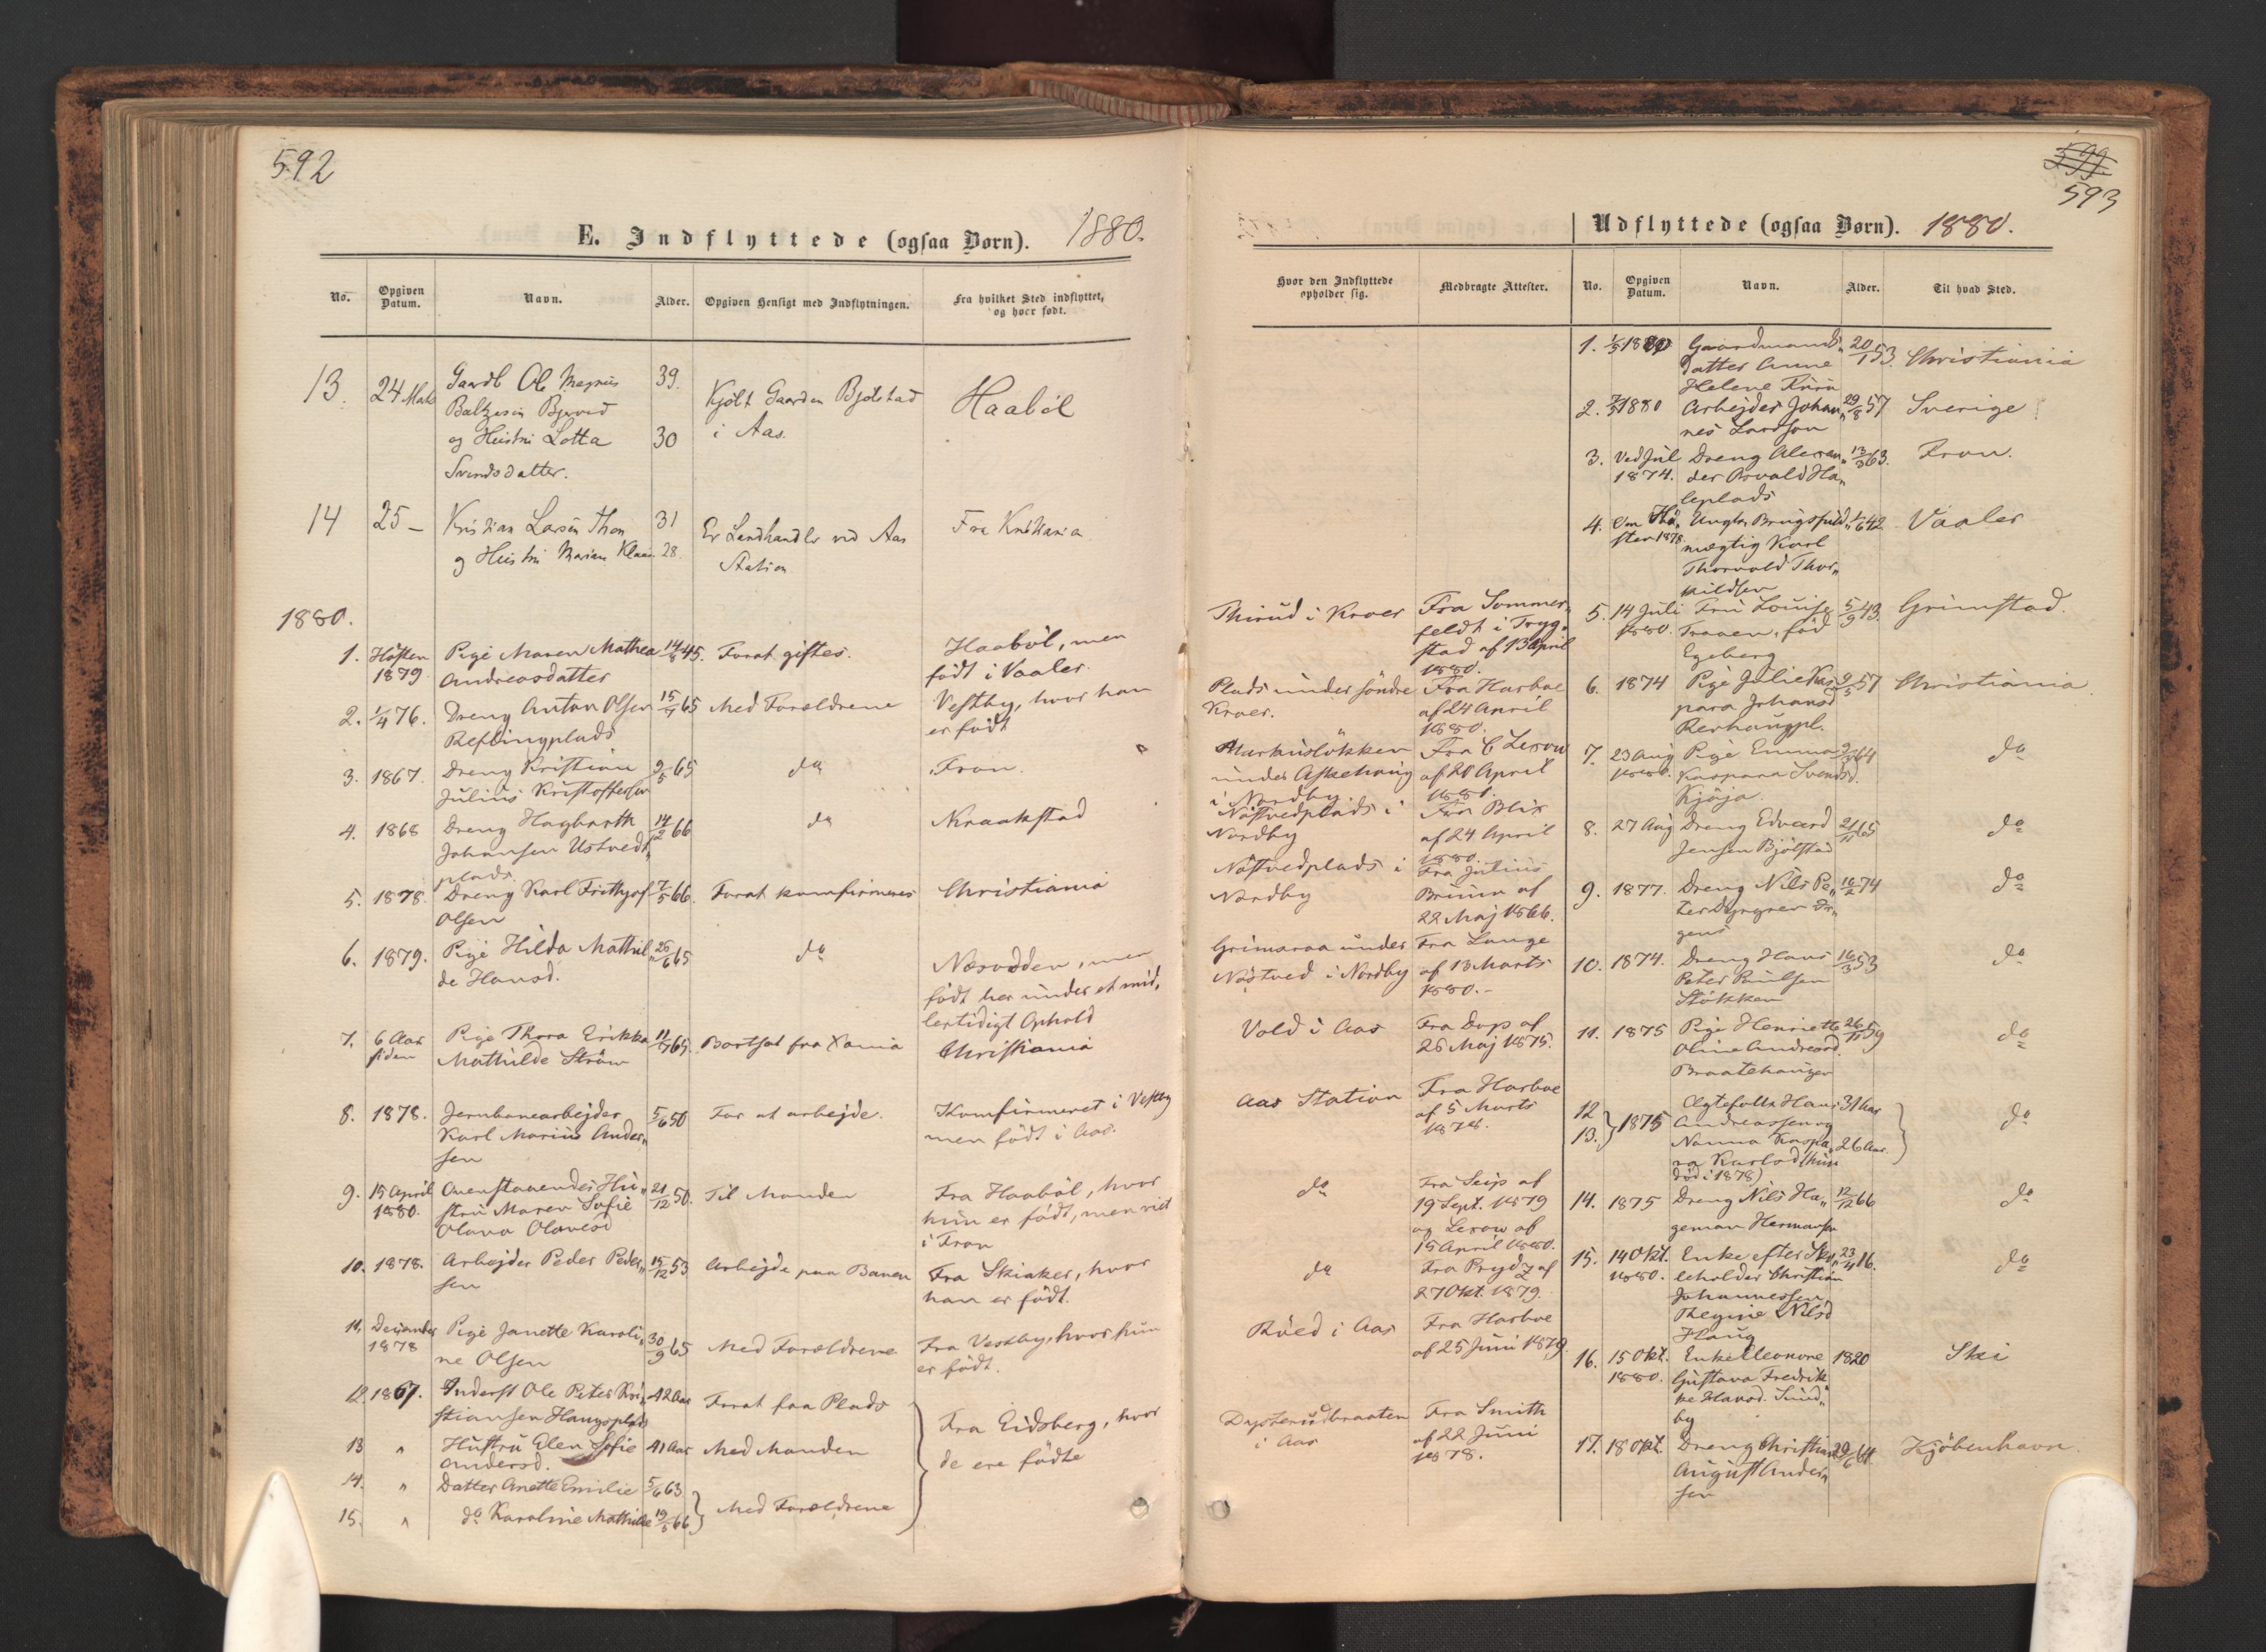 592
E. Indflyttede (ogsaa Børn). 1880.
No.
Opgiven Datum.
Navn.
Alder.
Opgiven Hensigt med Indflytningen.
Fra hvilket Sted indflyttet, og hvor født.
13.
24 Marts
Gaardb Ole Magnus
39.
og Hustru Lotta
30
Svendsdatter.
Kjøbt Gaarden Bjølstad
i Aas.
Haabøl
14
25 –
Kristian Larsen Thon
31
og Hustru Mariane
28.
Er Landhandler ved Aas
Station
Fra Kristiania
1880.
1.
Høsten
1879
Pige Maren Mathea
Andreasdatter
14/8 45.
Forat giftes.
Haabøl, men
født i Vaaler.
2.
1/4 76.
Dreng Anton Olsen
Reflingplads
15/7 65
Med Forældrene
Vestby, hvor han
er født
3.
1867.
Dreng Kristian
Julius Kristoffersen
9/5 65
do
Fron.
4.
1868
Dreng Hagbarth
Johansen Ustvedt„
plads.
14/2 66
do
Kraakstad
5.
1878.
Dreng Karl Frithjof
Olsen
7/5 66.
Forat konfirmeres
Christiania
6.
1879.
Pige Hilda Mathil„
de Hansd.
26/6 65
do
Næsodden, men
født her under et mid„
lertidigt Ophold
7.
6 Aar
siden
Pige Thora Erikka
Mathilde Strøm
11/7 65.
Bortsat fra Xania
Christiania
8.
1878.
Jernbanearbejder
Karl Marius Ander„
sen
5/6 50
For at arbejde.
Konfirmeret i Vestby
men født i Aas.
9.
15 April
1880.
Ovenstaaendes Hu„
stru Maren Sofie
Olava Olavesd
21/12 50.
Til Manden
Fra Haabøl, hvor
hun er født, men viet
i Fron
10.
1878.
Arbejder Peder Peder„
sen
15/12 53
Arbejde paa Banen
Fra Skiaker, hvor
han er født.
11.
December
1878
Pige Janette Karoli„
ne Olsen
30/9 65
Med Forældrene
Fra Vestby, hvor hun
er født.
12.
1867.
Inderst Ole Peter Kri„
stiansen Haugsplads
42 Aar
Forat faa Plads
13
"
Hustru Elen Sofie
Andersd.
41 Aar
Med Manden
Fra Eidsberg, hvor
de ere fødte
14.
"
Datter Anette Emilie
5/6 63
15.
"
do Karoline Mathilde
19/5 66
Med Forældrene
599.
593
Udflyttede (ogsaa Børn). 1880.
Hvor den Indflyttede opholder sig.
Medbragte Attester.
No.
Opgiven Datum.
Navn.
Alder.
Til hvad Sted.
1.
1/5 1880
Gaardmands„
datter Anne
Helene
20/1 53.
Christiania
2.
7/5 1880
Arbejder Johan„
nes Lardson
29/8 57
Sverige
3.
Ved Jul
1874.
Dreng Alexan„
der Osvald Ha„
leplads
13/3 63.
Fron.
4.
Om Hø„
sten 1878.
Ungk. Brugsfuld„
mægtig Karl
Thorvald Thor„
kildsen
1/6 42
Vaaler
Thirud i Kroer
Fra Sommer„
feldt i Tryg„
stad af 13 April
1880.
5.
14 Juli
1880.
Fru Louise
Traaen, fød
Egeberg
5/9 43.
Grimstad.
Plads under søndre
Kroer.
Fra Harboe
af 24 April
1880.
6.
1874
Pige Julie Kas„
para Johansd
Revhaugpl.
9/5 57
Christiania.
Markusløkken
under Askehaug
i Nordby.
Fra C Lexow
af 20 April
1881.
7.
23 Aug
1880.
Pige Emma
Kaspara Svendsd.
Kjøja.
64
do
Nøstvedplads i
Nordby
Fra Blix
af 24 April
1880.
8.
27 Aug
Dreng Edvard
Jensen Bjølstad
21/11 65
do
Nøstvedplads i
Nordby
Fra Julius
Bruun af
22 Maj 1866.
9.
1877.
Dreng Nils Pe„
ter
gens
16/2 74
do
Grimaraa under
Nøstved i Nordby
Fra Lange
af 13 Marts
1880. –
10.
1874.
Dreng Hans
Peter Paulsen
Støkken
16/3 53
do
Vold i Aas
Fra Dop af
26 Maj 1875.
11.
1875
Pige Henriette
Oline Andreasd.
Braatehaugen
26/11 59
do
Aas Station
Fra Harboe
af 5 Marts
1878.
12
13.
1875
Ægtefolk Hans
Andreassen og
Nanna Kaspa„
ra Karlsd (hun
død i 1878)
31 Aar
26 Aar.
do
do
Fra Seip af
19 Sept. 1879
og Lexow af
15 April 1880.
14.
1875
Dreng Nils Ha„
geman Hermansen
12/12 66
do
do
Fra Prydz af
27 Okt. 1879.
15.
14 Okt.
1880.
Enke efter Sko„
leholder Christian
Johannessen,
Regine Nilsd
Haug
23/4 16.
do
Rued i Aas
Fra Harboe
af 25 Juni 1879
16.
15 Okt.
1880.
Enke Eleonore
Gustava Fredrik„
ke Hansd. Sund„
by
1820
Ski
Dysterudbraaten
i Aas
Fra Smith
af 22 Juni
1878.
17.
18 Okt.
Dreng Christian
August Ander„
sen
29/6 64.
Kjøbenhavn.